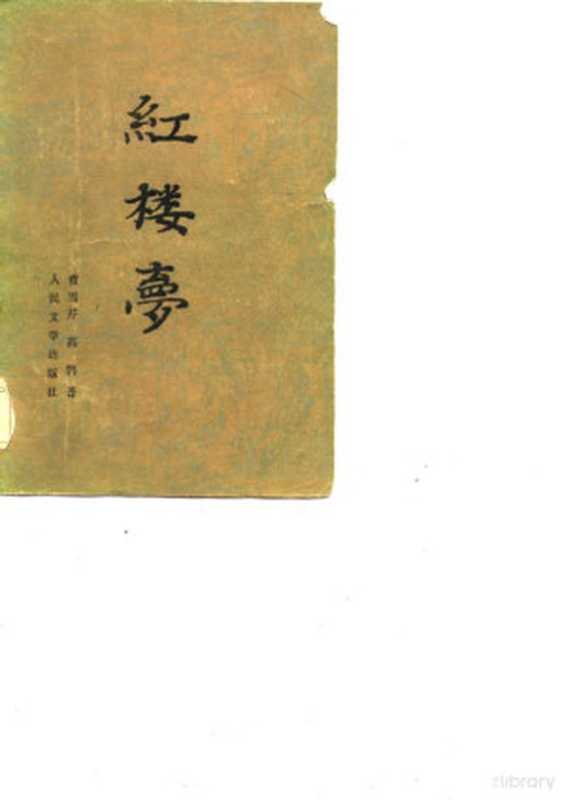 紅楼夢
曹雪芹 高鹗著
人民文学出版社
zlibrary